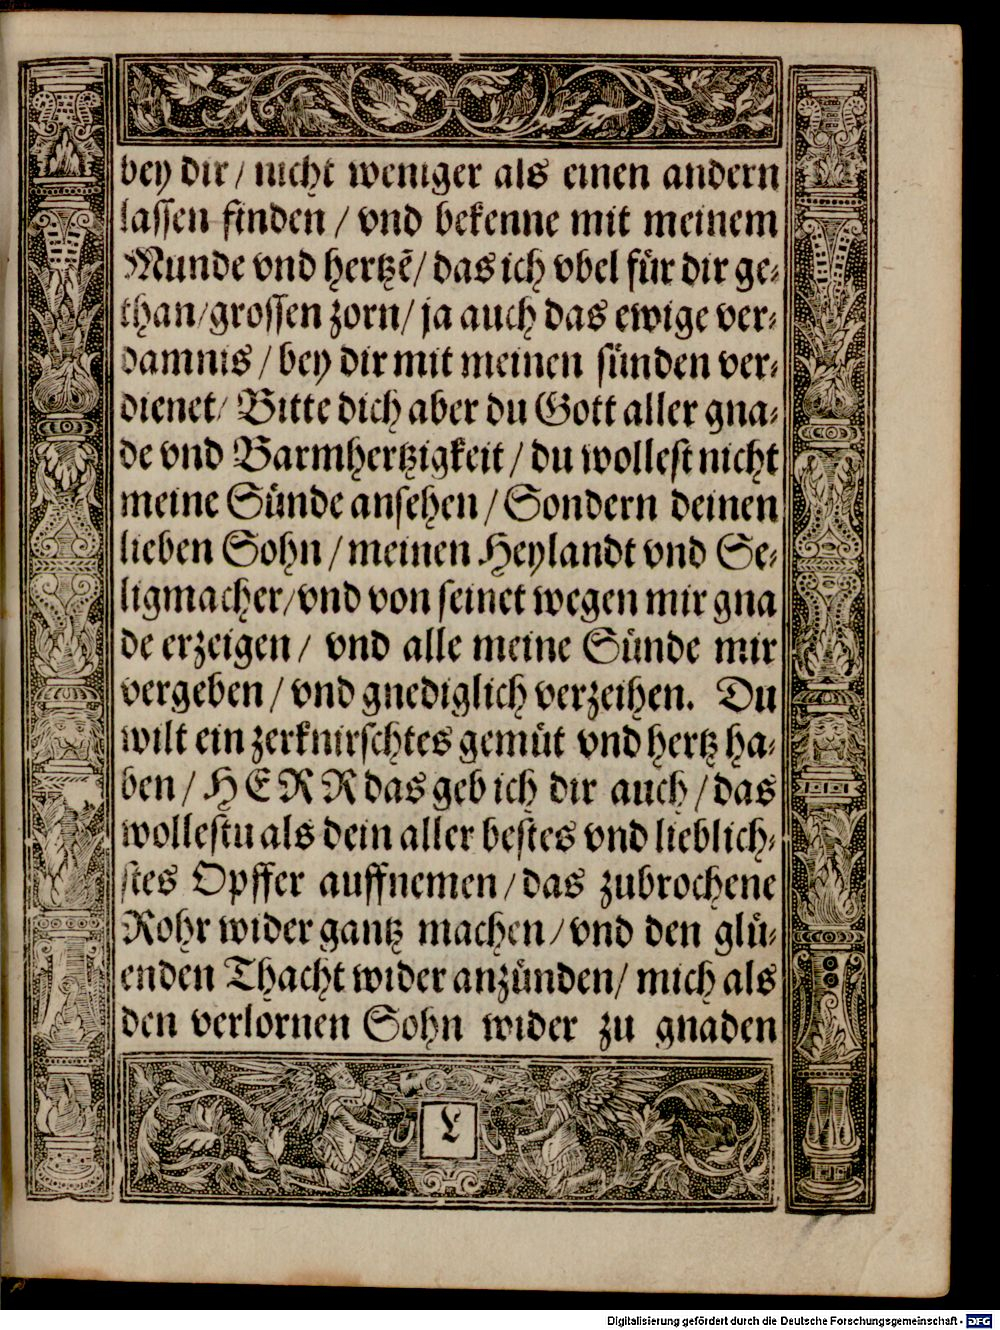 bey dir / nicht weniger als einen andern
lassen finden / vnd bekenne mit meinem
Munde vnd hertzẽ / das ich vbel für dir ge⸗
than / grossen zorn / ja auch das ewige ver⸗
damnis / bey dir mit meinen sünden ver⸗
dienet / Bitte dich aber du Gott aller gna⸗
de vnd Barmhertzigkeit / du wollest nicht
meine Sünde ansehen / Sondern deinen
lieben Sohn / meinen Heylandt vnd Se⸗
ligmacher / vnd von seinet wegen mir gna
de erzeigen / vnd alle meine Sünde mir
vergeben / vnd gnediglich verzeihen. Du
wilt ein zerknirschtes gemüt vnd hertz ha⸗
ben / HERR das geb ich dir auch / das
wollestu als dein aller bestes vnd lieblich⸗
stes Opffer auffnemen / das zubrochene
Rohr wider gantz machen / vnd den glü⸗
enden Thacht wider anzünden / mich als
den verlornen Sohn wider zu gnaden
L
Digitalisierung gefördert durch die Deutsche Forschungsgemeinschaft - DFG